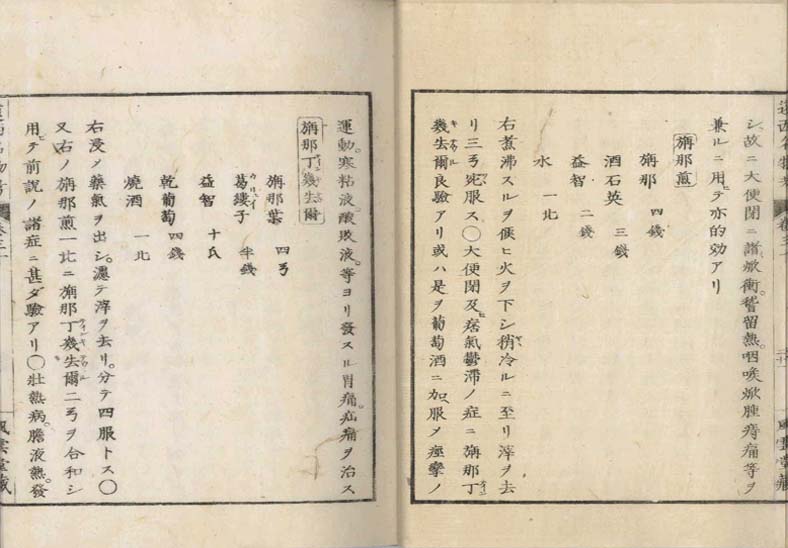 シ故ニ大便閉ニ諸焮衝稽留熱。咽喉焮腫痔痛等ヲ
兼ルニ用テ亦的効アリ
旃那煎
旃那 四錢
酒石英 三錢
益智 二錢
水 一北
右煮沸スルヲ候ヒ火ヲ下シ稍冷ルニ至リ滓ヲ去
リ三弓宛服ス〇大便閉及痞氣鬱滯ノ症ニ旃那丁
幾失爾良驗アリ或ハ是ヲ葡萄酒ニ加服メ痙攣ノ
運動。寒粘液酸敗液。等ヨリ發スル胃痛。疝痛ヲ治ス
旃那丁幾失爾
旃那葉 四弓
葛縷子 半錢
益智 十氏
乾葡萄 四錢
燒酒 一北
右浸メ藥氣ヲ出シ。濾テ滓ヲ去リ。分テ四服トス〇
又右ノ旃那煎一北ニ旃那丁幾失爾二弓ヲ合和シ
用テ前説ノ諸症ニ甚ダ驗アリ〇壯熱病。膽液熱。發
風雲堂藏